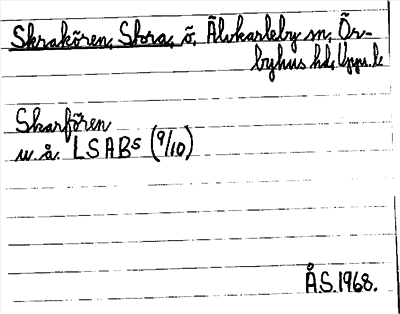 Skrakören, Stora, ö, Älvkarleby sn, Ör-
byhus hd, Upps. l.
Skarfören
u.å. LSABs (9/10)
Å.S. 1968.